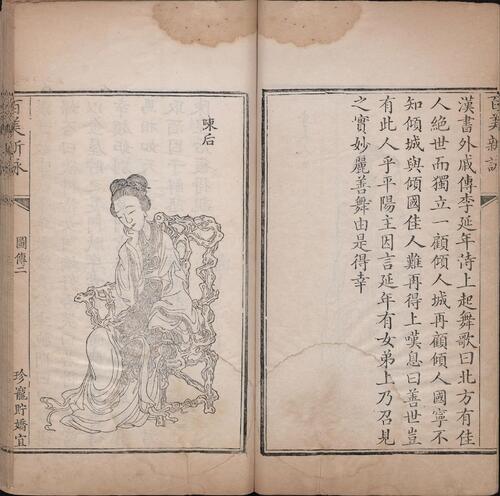 百美新詠
漢書外戚傳李延年侍上起舞歌曰北方有佳
人絶世而獨立一顧傾人城再顧傾人國寧不
知傾城與傾國佳人難再得上嘆息曰善世豈
有此人乎平陽主因言延年有女弟上乃召見
之實妙麗善舞由是得幸
陳后
百美新詠
圖傳二
珍寵貯嬌宜